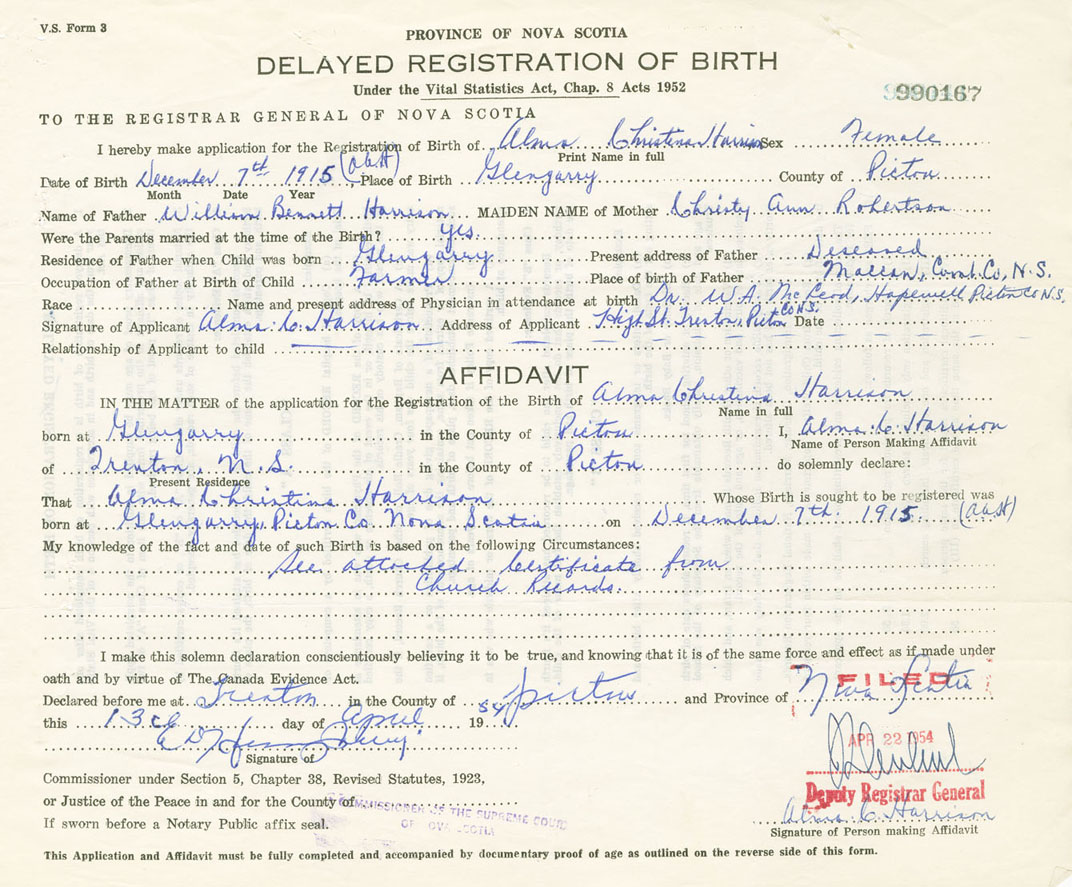 V.S. Form 3
PROVINCE OF NOVA SCOTIA
DELAYED REGISTRATION OF BIRTH
Under the Vital Statistics Act, Chap. 8 Acts 1952
990167
TO THE REGISTRAR GENERAL OF NOVA SCOTIA
I hereby make application for the Registration of Birth of Alma Christina Harrison Sex Female
Print Name in full
Date of Birth December 7th 1915 (A.C.H) Place of Birth Glengarry County of Picton
Month Date Year
Name of Father William Bennett Harrison MAIDEN NAME of Mother Christy Ann Robertson
Were the Parents married at the time of the Birth? yes.
Residence of Father when Child was born Glengarry Present address of Father Deseased
Occupation of Father at Birth of Child Farmer Place of birth of Father Maccan, Cumb. Co, N.S.
Race Name and present address of Physician in attendance at birth Dr. W.A. McLeod, Hopewell, Picton Co N.S.
Signature of Applicant Alma C. Harrison Address of Applicant High St. Trenton, Picton Co N.S. Date
Relationship of Applicant to child
AFFIDAVIT
IN THE MATTER of the application for the Registration of the Birth of Alma Christina Harrison
Name in full
born at Glengarry in the County of Picton I, Alma C. Harrison
Name of Person Making Affidavit
of Trenton, N.S. in the County of Picton do solemnly declare:
Present Residence
That Alma Christina Harrison Whose Birth is sought to be registered was
born at Glengarry, Picton Co. Nova Scotia on December 7th. 1915. (A.C.H)
My knowledge of the fact and date of such Birth is based on the following Circumstances:
See attached Certificate from
Church Records.
I make this solemn declaration conscientiously believing it to be true, and knowing that it is of the same force and effect as if made under
oath and by virtue of The Canada Evidence Act.
Declared before me at Trenton in the County of and Province of Nova Scotia
FILED
this 13 day of April 1954
APR 22 1954
Signature of
Commissioner under Section 5, Chapter 38, Revised Statutes, 1923,
Deputy Registrar General
or Justice of the Peace in and for the County of
COMMISSIONER OF THE SUPREME COURT
OF NOVA SCOTIA
Alma C. Harrison
If sworn before a Notary Public affix seal.
Signature of Person making Affidavit
This Application and Affidavit must be fully completed and accompanied by documentary proof of age as outlined on the reverse side of this form.